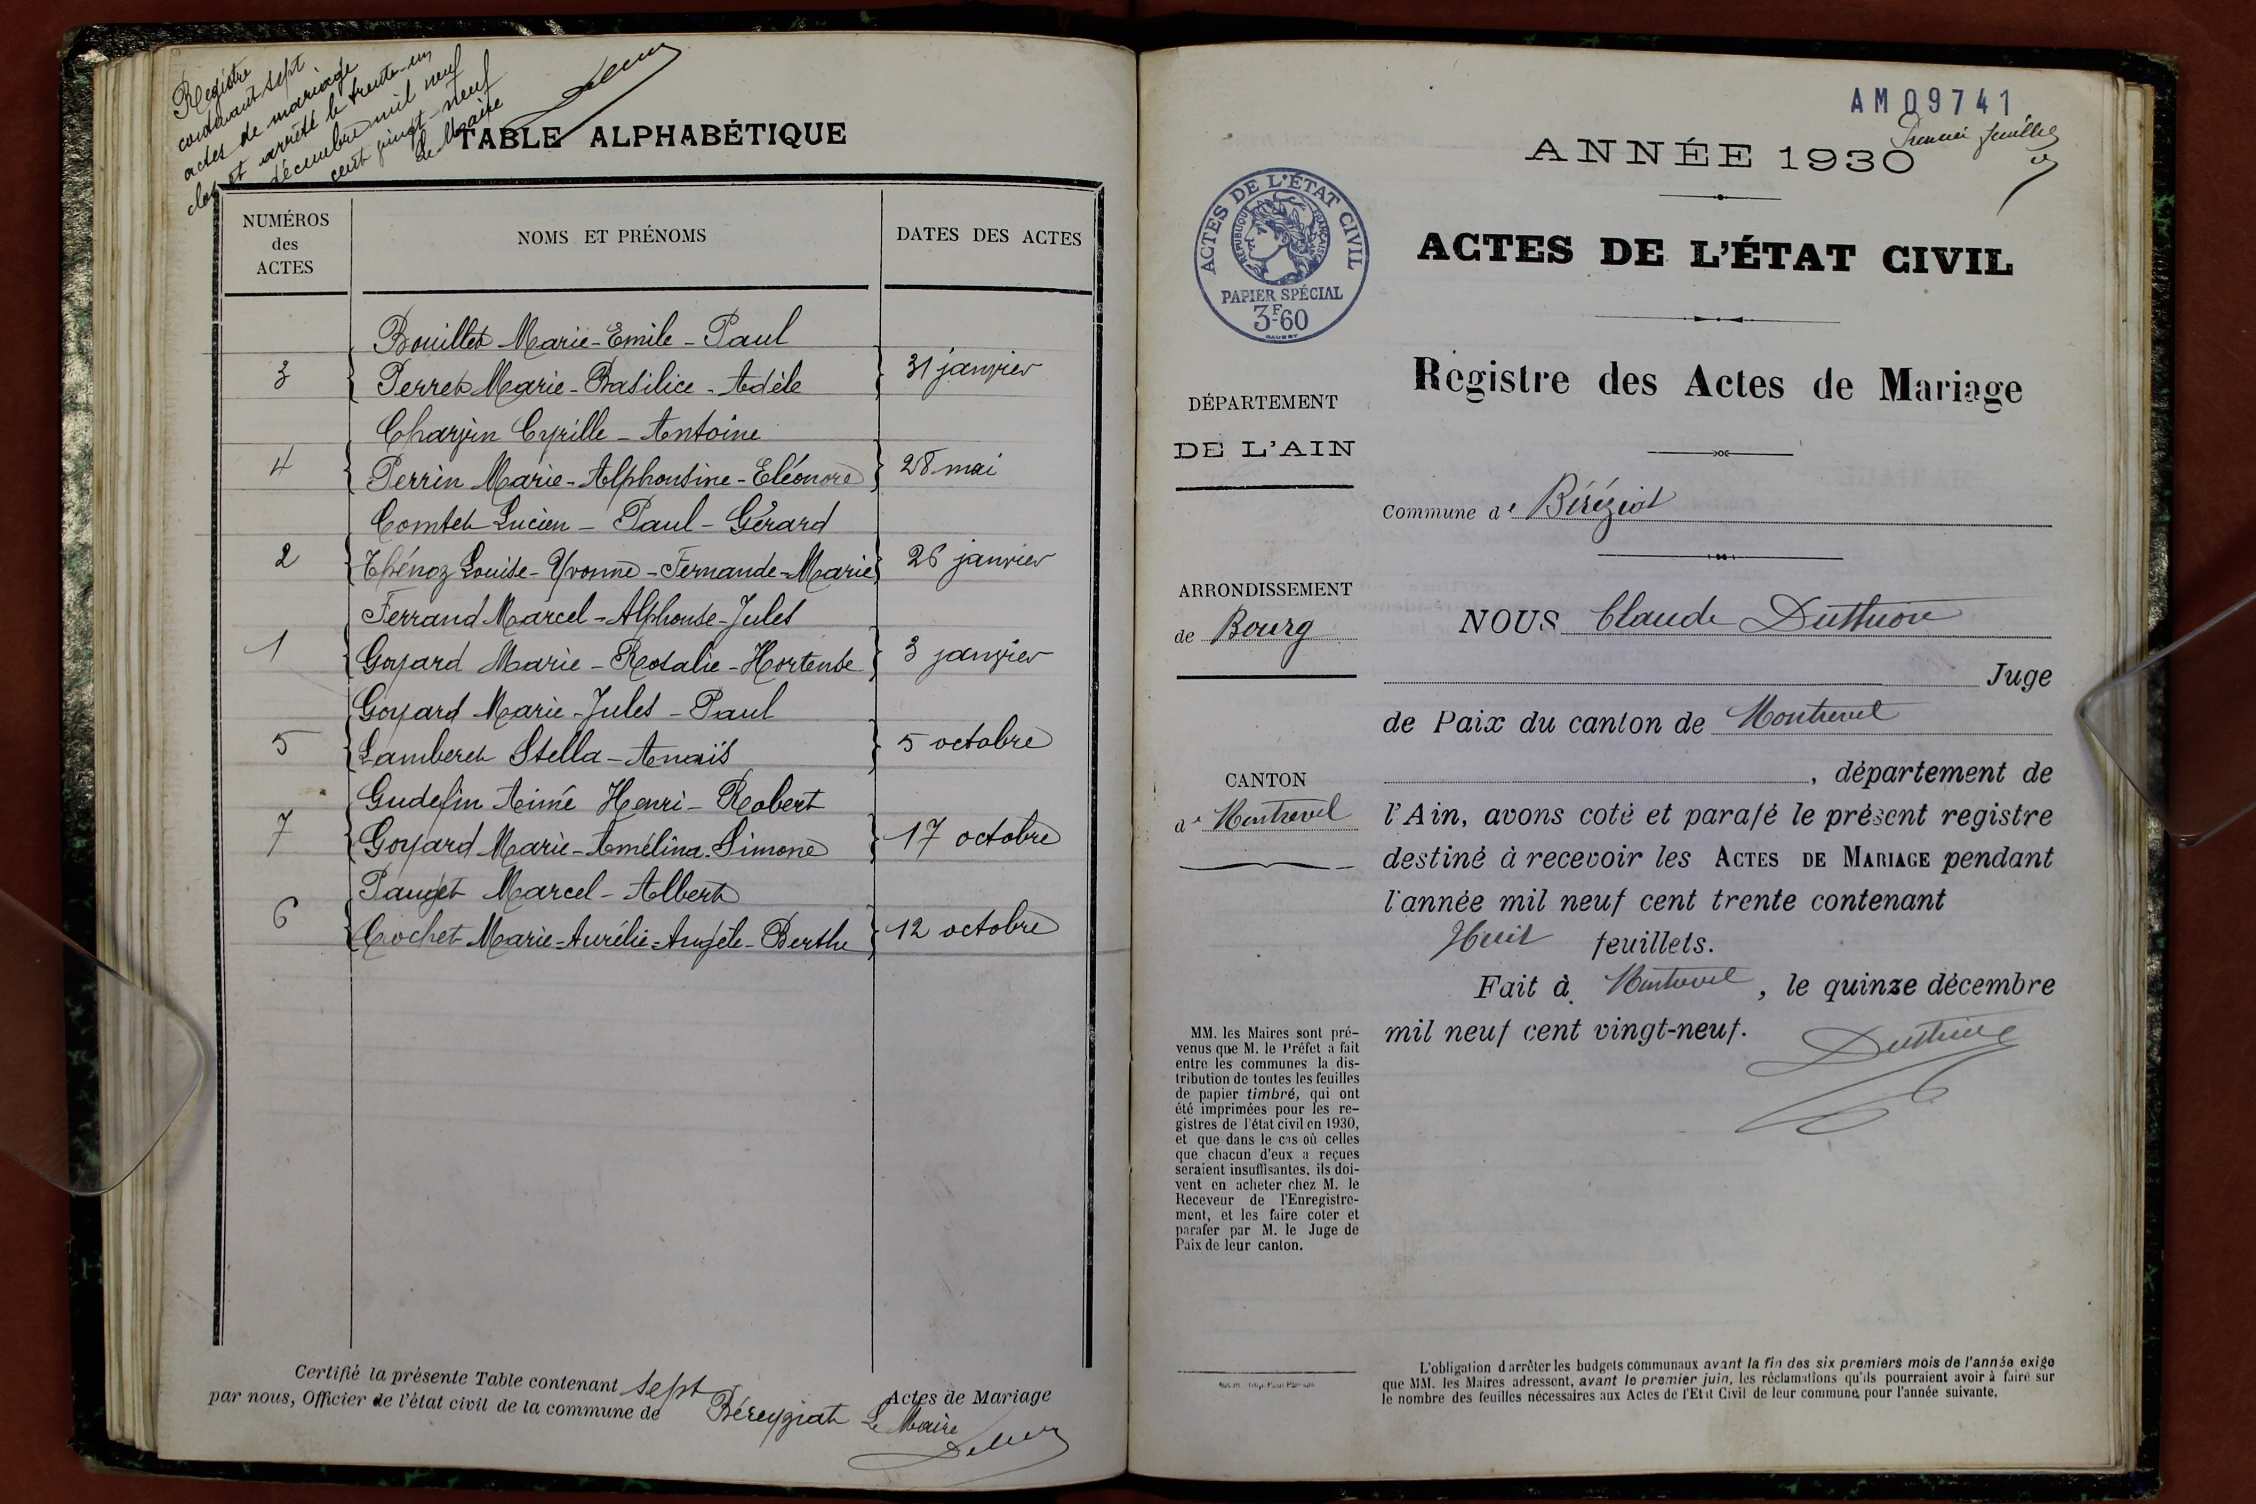 Registre
contenant sept
actes de mariage
clos et arrêté le trente-un
décembre mil neuf
cent vingt-neuf
Le Maire
TABLE ALPHABÉTIQUE
NUMÉROS
des
ACTES
NOMS ET PRÉNOMS
DATES DES ACTES
Bouillet Marie-Emile-Paul
3 Perret Marie-Basilice-Adèle 31 janvier
Charvin Cyrille-Antoine
4 Perrin Marie-Alphonsine-Eléonore 28 mai
Comtet Lucien-Paul-Gérard
2 Thénoz Louise-Yvonne-Fernande-Marie 26 janvier
Ferrand Marcel-Alphonse-Jules
1 Goyard Marie-Rosalie-Hortense 3 janvier
Goyard Marie-Jules-Paul
5 Lamberet Stella-Anaïs 5 octobre
Gudefin Aimé Henri-Robert
7 Goyard Marie-Amélina-Simone 17 octobre
Pauget Marcel-Albert
6 Cochet Marie-Aurélie-Angèle-Berthe 12 octobre
Certifié la présente Table contenant sept Actes de Mariage
par nous, Officier de l'état civil de la commune de Béreyziat Le Maire
AM09741
Premier feuillet
ANNÉE 1930
ACTES DE L'ÉTAT CIVIL
RÉPUBLIQUE FRANÇAISE
PAPIER SPÉCIAL
3F60
ACTES DE L'ÉTAT CIVIL
Registre des Actes de Mariage
DÉPARTEMENT
DE L'AIN
Commune de Béréziat
ARRONDISSEMENT
de Bourg
CANTON
de Montrevel
NOUS Claude
Juge
de Paix du canton de Montrevel
, département de
l'Ain, avons coté et parafé le présent registre
destiné à recevoir les ACTES DE MARIAGE pendant
l'année mil neuf cent trente contenant
Huit feuillets.
Fait à Montrevel, le quinze décembre
mil neuf cent vingt-neuf.
MM. les Maires sont pré-
venus que M. le Préfet a fait
entre les communes la dis-
tribution de toutes les feuilles
de papier timbré, qui ont
été imprimées pour les re-
gistres de l'état civil en 1930,
et que dans le cas où celles
que chacun d'eux a reçues
seraient insuffisantes, ils doi-
vent en acheter chez M. le
Receveur de l'Enregistre-
ment, et les faire coter et
parafer par M. le Juge de
Paix de leur canton.
L'obligation d'arrêter les budgets communaux avant la fin des six premiers mois de l'année exige
que MM. les Maires adressent, avant le premier juin, les réclamations qu'ils pourraient avoir à faire sur
le nombre des feuilles nécessaires aux Actes de l'Etat Civil de leur commune pour l'année suivante.